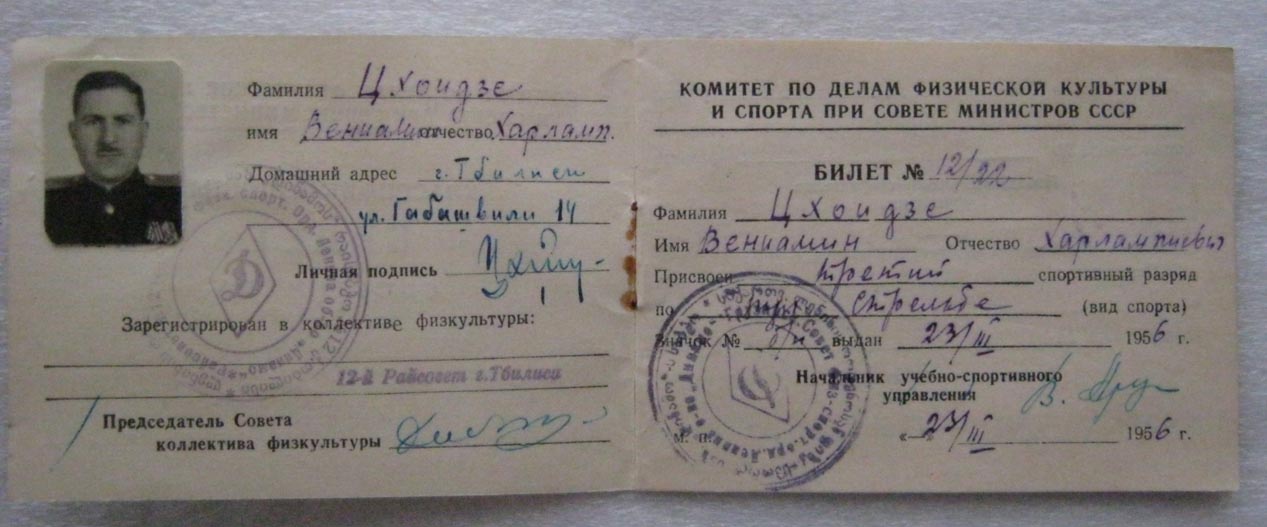 Фамилия Цхоидзе
имя Вениамин отчество Харламп.
Домашний адрес г. Тбилиси
ул. Габашвили 14
Личная подпись
Зарегистрирован в коллективе физкультуры:
12-й Райсовет г. Тбилиси
Председатель Совета
коллектива физкультуры
КОМИТЕТ ПО ДЕЛАМ ФИЗИЧЕСКОЙ КУЛЬТУРЫ
И СПОРТА ПРИ СОВЕТЕ МИНИСТРОВ СССР
БИЛЕТ № 12/22
Фамилия Цхоидзе
Имя Вениамин Отчество Харлампиевич
Присвоен третий спортивный разряд
по стрельбе (вид спорта)
Значок № б/н выдан 23/III 1956 г.
Начальник учебно-спортивного
управления
м. п. « 23/III 1956 г.